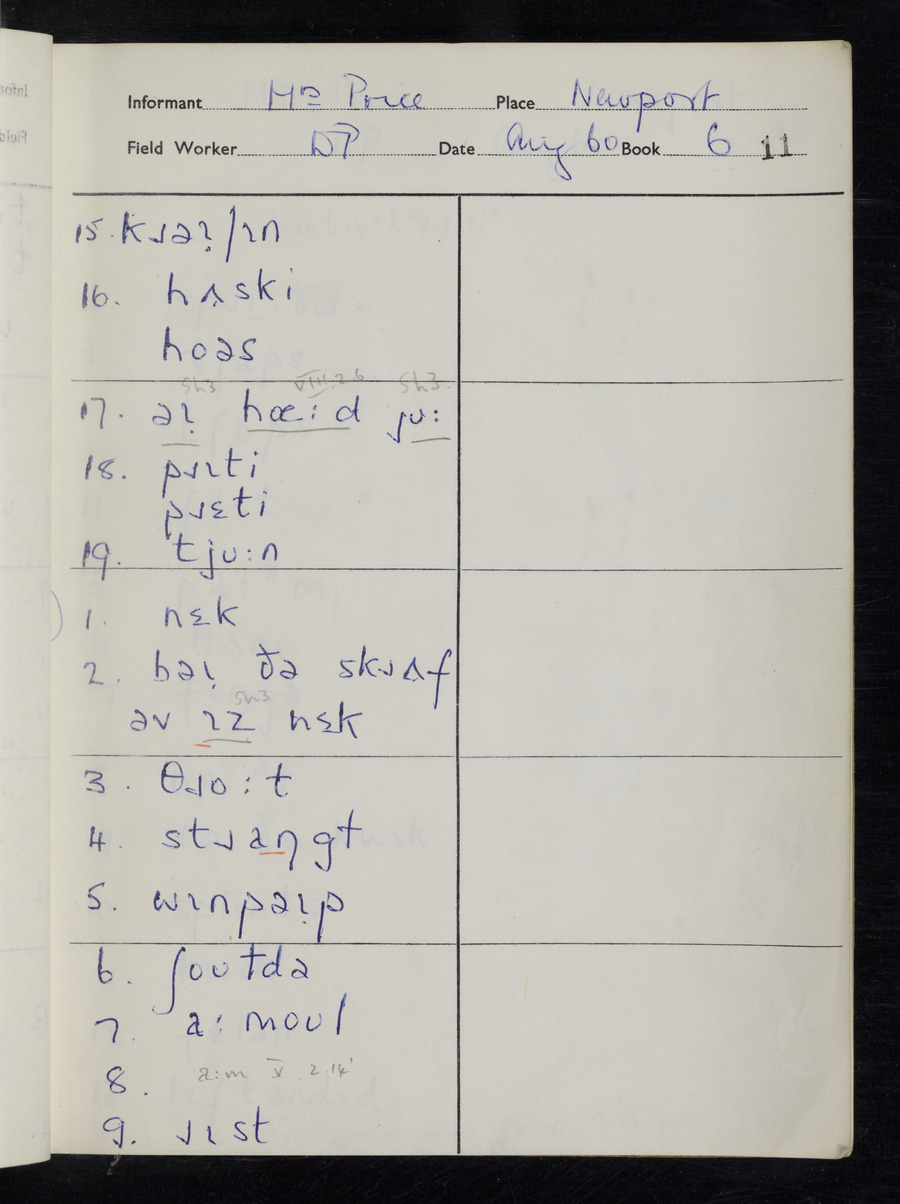 Informant Mrs Price Place Newport
Field Worker DP Date Aug 60 Book 6 11
15. kɹəɪ̣/ɪn
16. hʌ̣ski
hoəs
Sh3 VIII.2.6 Sh3.
17. əɪ̣ hœ:d jʊ:
18. pɹɪti
pɹɛti
19. tjʊ:n
1. nɛk
2. bəɪ̣ ðə skɹʌf
Sh3
əv ɪz nɛk
3. θɹo:t
4. stɹaŋgt
5. wɪnpəɪ̣p
6. ʃoʊtdə
7. a:moʊl
8. a:m V 2.14
9. ɹɪst